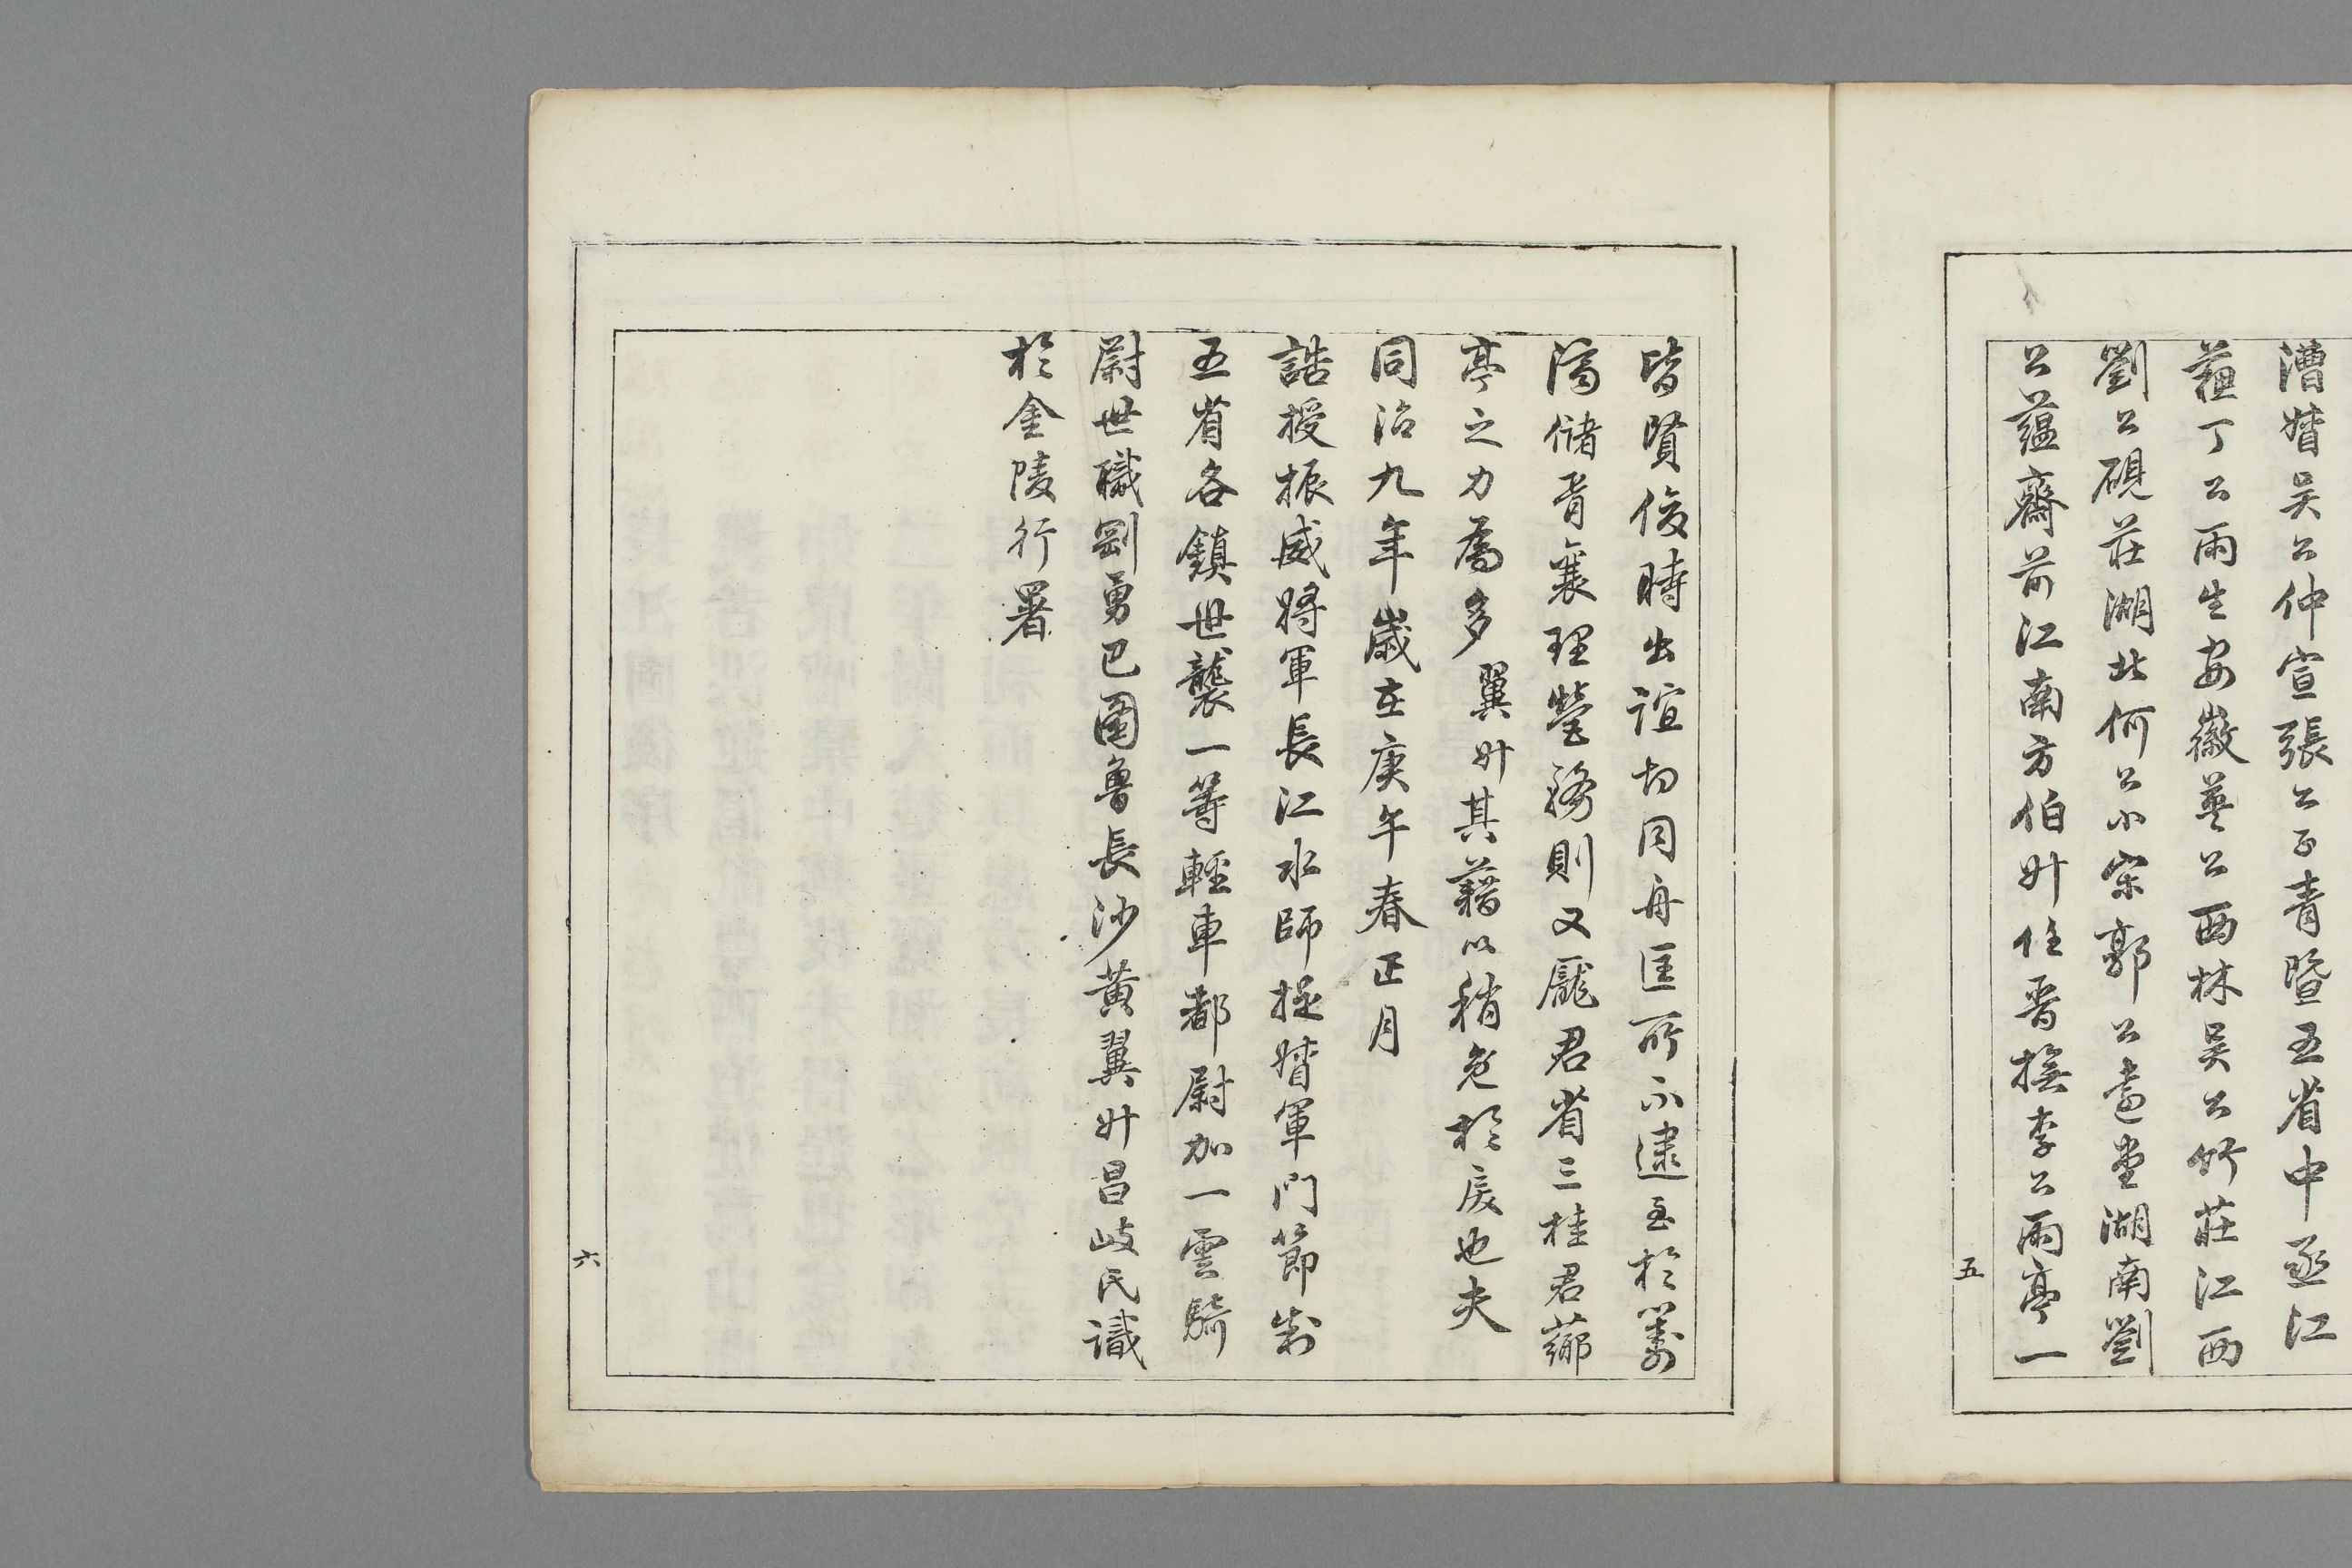 漕督吳公仲宣張公子青暨五省中丞江
蘇丁公雨生安徽英公西林吳公竹莊江西
劉公硯莊湖北何公小宋郭公遠堂湖南劉
公蘊齋前江南方伯升任晉撫李公雨亭一
五
皆賢俊時出誼切同舟匡所不逮至於籌
濟儲胥襄理營務則又龐君省三桂君薌
亭之力爲多翼升其藉以稍免於戾也夫
同治九年歲在庚午春正月
誥授振威將軍長江水師提督軍門節制
五省各鎮世襲一等輕車都尉加一雲騎
尉世職剛勇巴圖魯長沙黃翼升昌岐氏識
於金陵行署
六